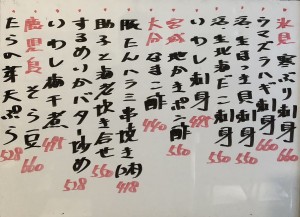 氷見 寒ぶり刺身 660
シマズラハギ刺身 495
活生目白貝刺身 550
活生北海だこ刺身 550
いわし刺身 495
宮城 地かきポン酢 550
大分 なまこ酢 440
豚たんハラミ串焼き(2本) 418
助子と海老炊き合せ 550
するめいかバター炒め 528
いわし梅干煮 495
鹿児島 そら豆 660
たらの芽天ぷら 528